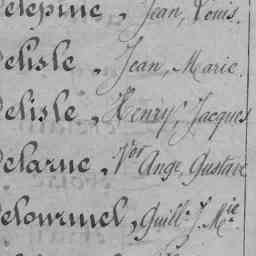 elepine, Jean, Louis.
Delisle, Jean, Marie.
Delisle, Henry, Jacques
Delarue, Vor Ange, Gustave
Delourmel, Guill. J. Mie.